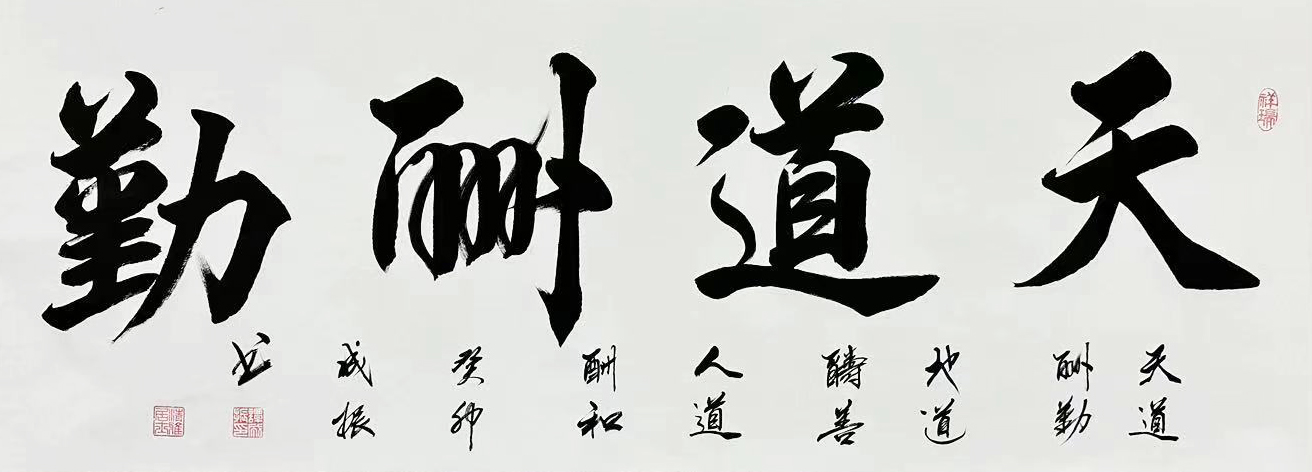 天道酬勤
天道
酬勤
地道
酬善
人道
酬和
癸卯
成振
书